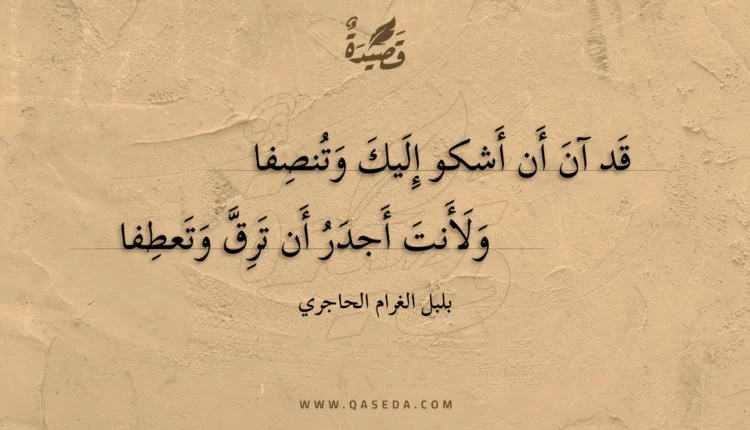 قَصِيْدَةٌ
قَد آنَ أَن أَشكو إِلَيكَ وَتُنصِفا
وَلَأَنتَ أَجدَرُ أَن تَرِقَّ وَتَعطِفا
بلبل الغرام الحاجري
WWW.QASEDA.COM